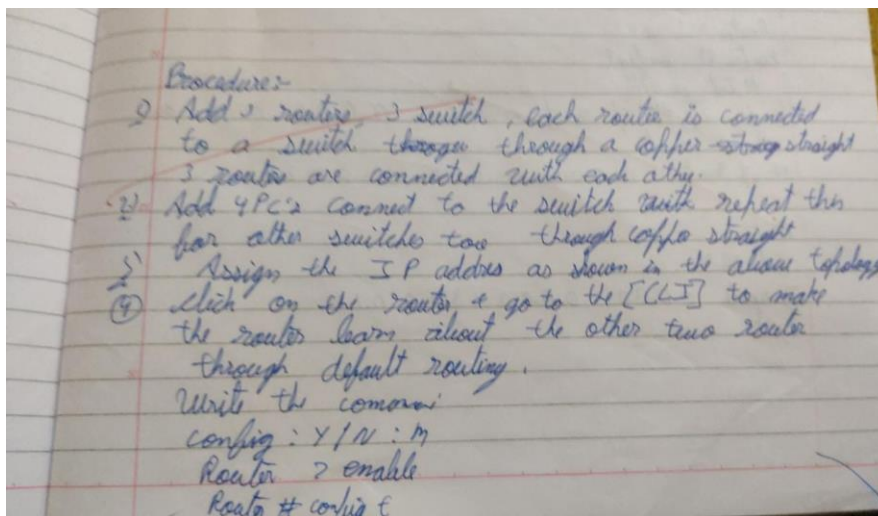 Procedure:-
1) Add 3 routers, 3 switch, each router is connected
to a switch through a copper straight
3 routers are connected with each other.
2) Add 4 PC's connect to the switch with repeat this
for other switches too through copper straight
3) Assign the IP addres as shown in the above topology
4) click on the router & go to the [CLI] to make
the router learn about the other two router
through default routing.
Write the
config : Y/N : n
Router > enable
Router # config t